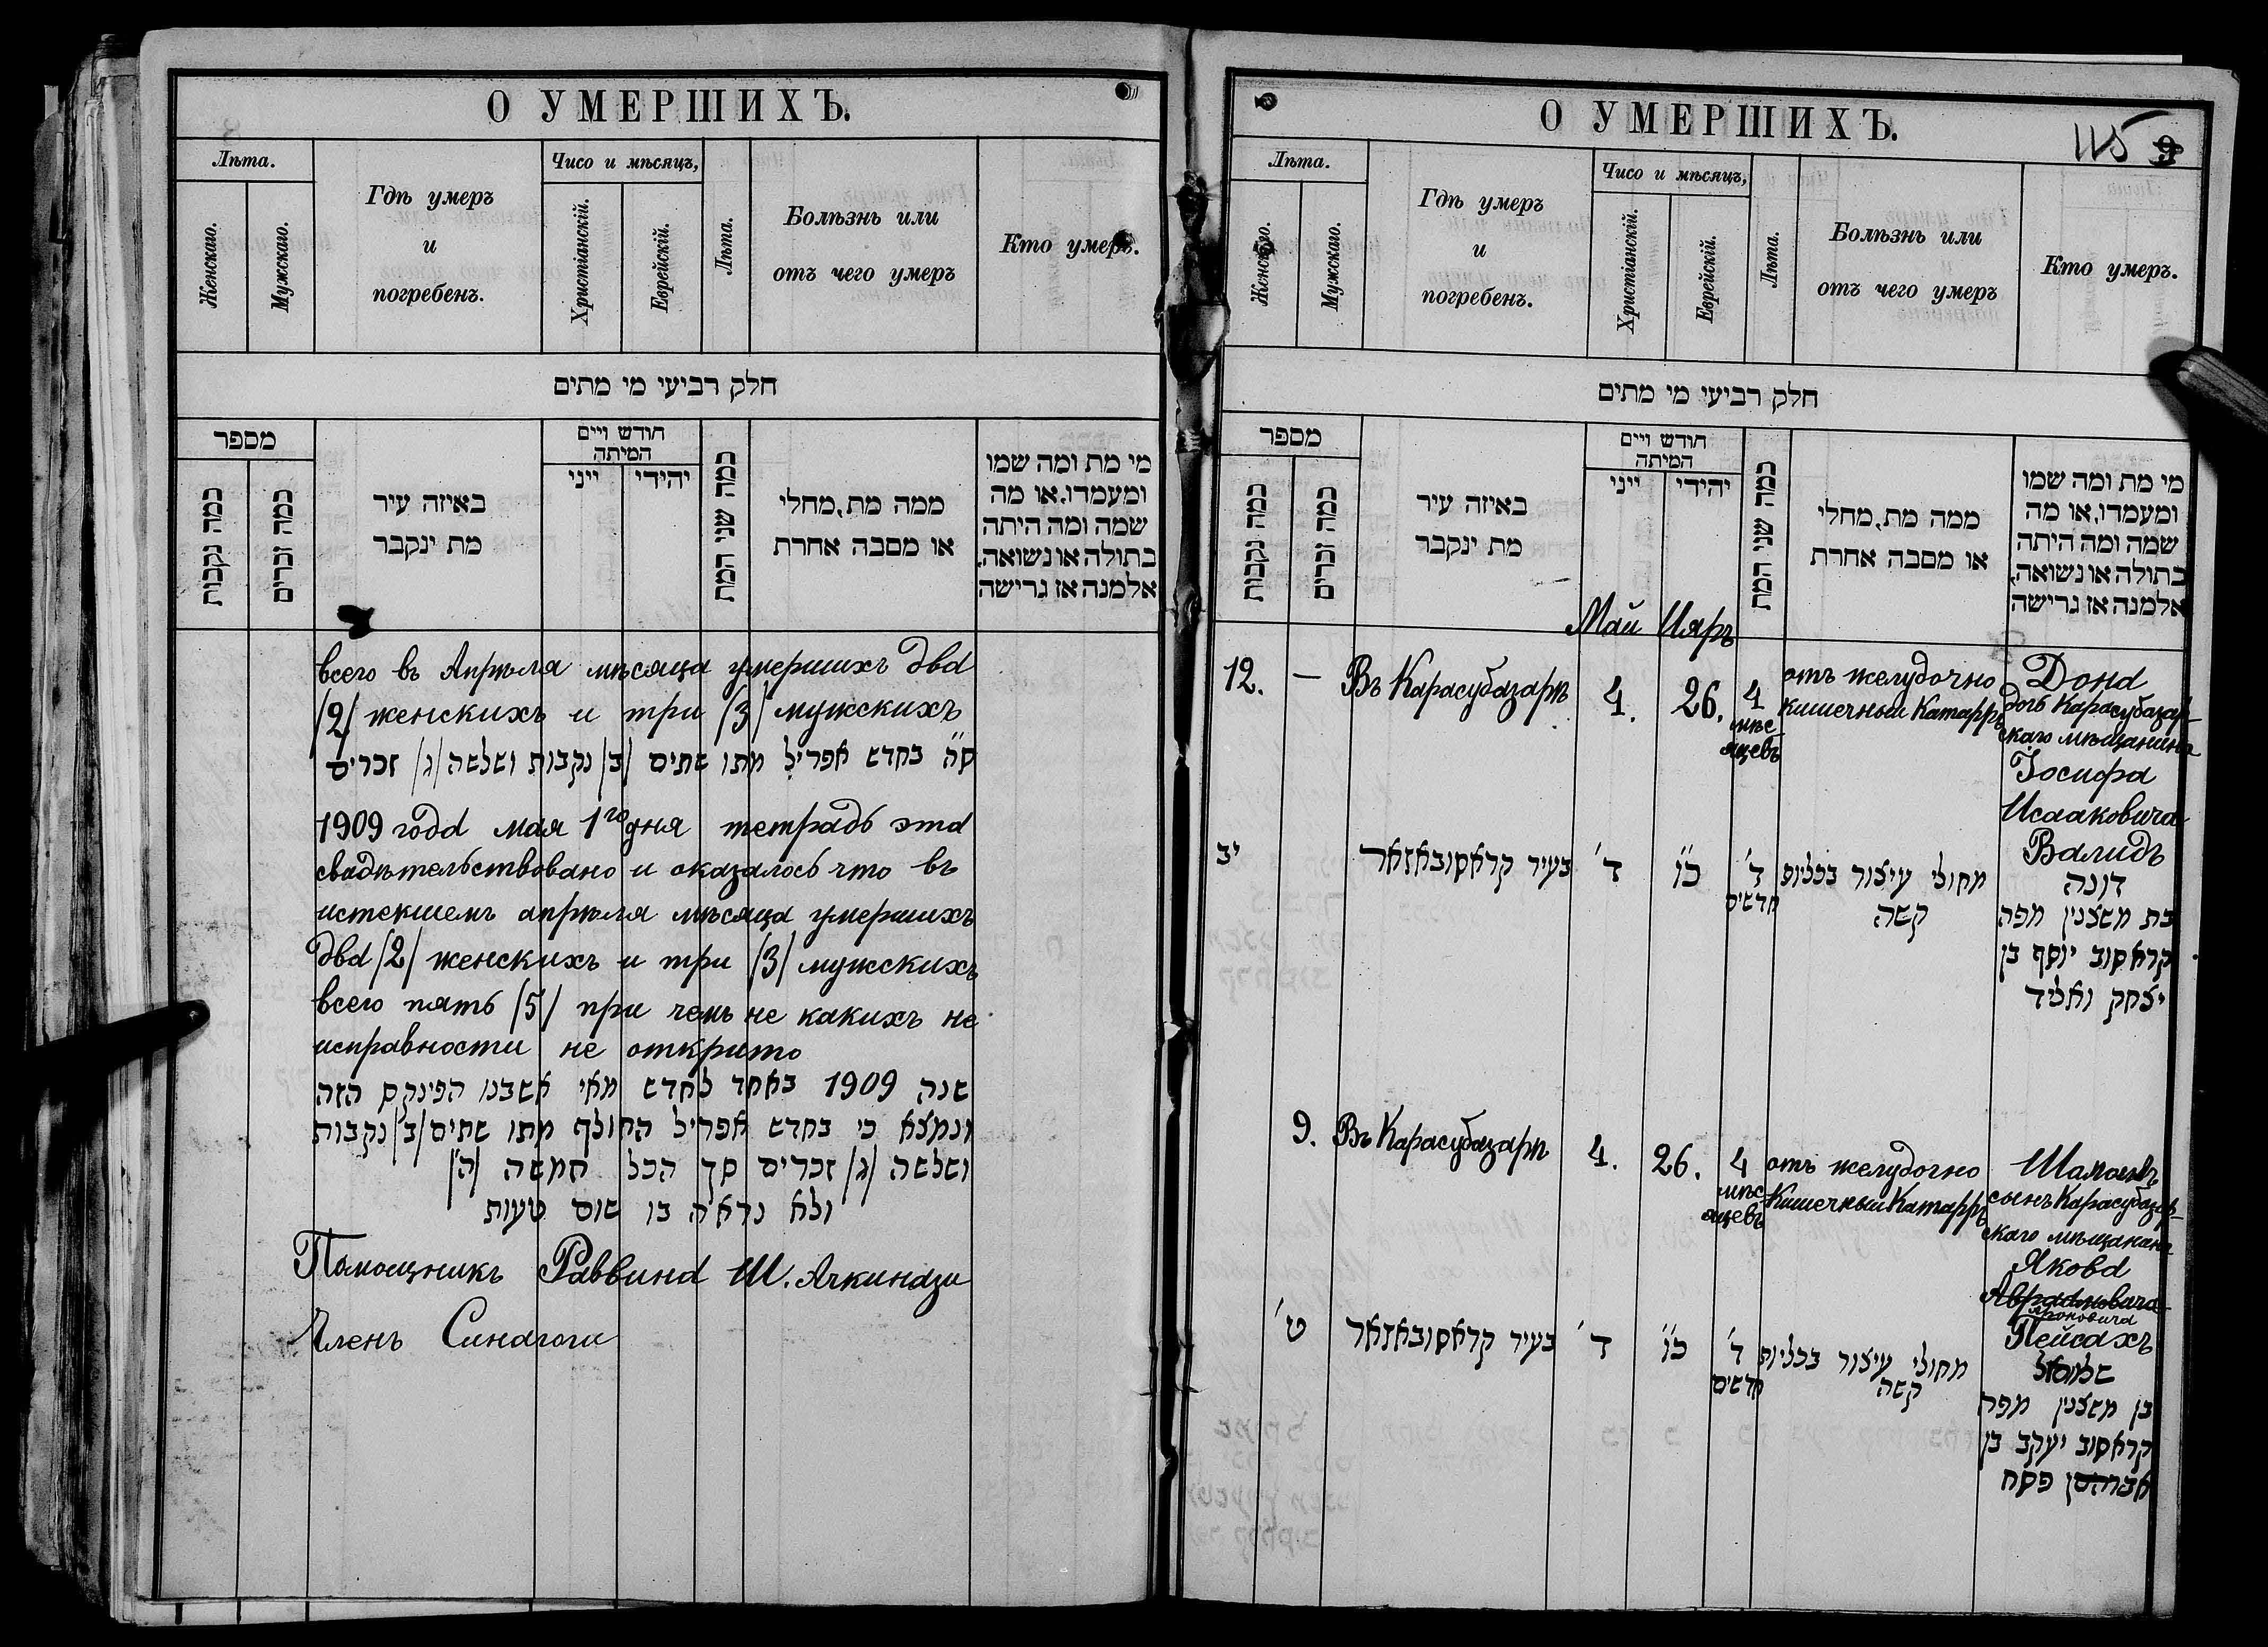 О УМЕРШИХЪ.
Лѣта.
Женскаго.
Мужскаго.
Гдѣ умеръ
и
погребенъ.
Чисо и мѣсяцъ,
Христіанскій.
Еврейскій.
Лѣта.
Болѣзнь или
отъ чего умеръ
Кто умеръ.
חלק רביעי מי מתים
מספר
כמה נקבות
כמה זכרים
באיזה עיר
מת ינקבר
חודש ויים
המיתה
ייני
יהידי
כמה שני המת
ממה מת, מחלי
או מסבה אחרת
מי מת ומה שמו
ומעמדו, או מה
שמה ומה היתה
בתולה או נשואה,
אלמנה אז גרישה
всего въ Апрѣля мѣсяца умершихъ два
/2/ женскихъ и три /3/ мужскихъ
ס״ה בחדש אפריל מתו שתים /ב/ נקבות ושלשה /ג/ זכרים
1909 года мая 1го дня тетрадь эта
свадѣтельствовано и оказалось что въ
истекшемъ апрѣля мѣсяца умершихъ
два /2/ женскихъ и три /3/ мужскихъ
всего пять /5/ при чемъ не какихъ не
исправности не открито
שנה 1909 באחד לחדש מאי אשבנו הפינקס הזה
ונמצא כי בחדש אפריל החולף מתו שתים /ב/ נקבות
ושלשה /ג/ זכרים סך הכל חמשה /ה/
ולא נראה בו שום טעות
Помощникъ Раввина Ш. Ачкинази
Членъ Синагоги
О УМЕРШИХЪ.
115
9
Лѣта.
Женскаго.
Мужскаго.
Гдѣ умеръ
и
погребенъ.
Чисо и мѣсяцъ,
Христіанскій.
Еврейскій.
Лѣта.
Болѣзнь или
отъ чего умеръ
Кто умеръ.
חלק רביעי מי מתים
מספר
כמה נקבות
כמה זכרים
באיזה עיר
מת ינקבר
חודש ויים
המיתה
ייני
יהידי
כמה שני המת
ממה מת, מחלי
או מסבה אחרת
מי מת ומה שמו
ומעמדו, או מה
שמה ומה היתה
בתולה או נשואה,
אלמנה אז גרישה
Май Ияръ
12.
—
Въ Карасубазарѣ
4.
26.
4
мѣс
яцевъ
отъ желудочно
кишечный Катарръ
Дона
дочь Карасубазар-
скаго мѣщанина
Іосифа
Исааковича
Валидъ
יב
בעיר קראסובאזאר
ד׳
כ״ו
ד׳
חדשים
מחולי עיצור בכליות
קשה
דונה
בת משצנין מפה
קראסוב יוסף בן
יצחק ואליד
9.
Въ Карасубазарѣ
4.
26.
4
мѣс
яцевъ
отъ желудочно
Кишечный Катарръ
сынъ Карасубазар-
скаго мѣщанина
Якова
Авраамовича
Ароновича
Пейсахъ
ט׳
בעיר קראסובאזאר
ד׳
כ״ו
ד׳
חדשים
מחולי עיצור בכליות
קשה
בן משצנין מפה
קראסוב יעקב בן
פסח